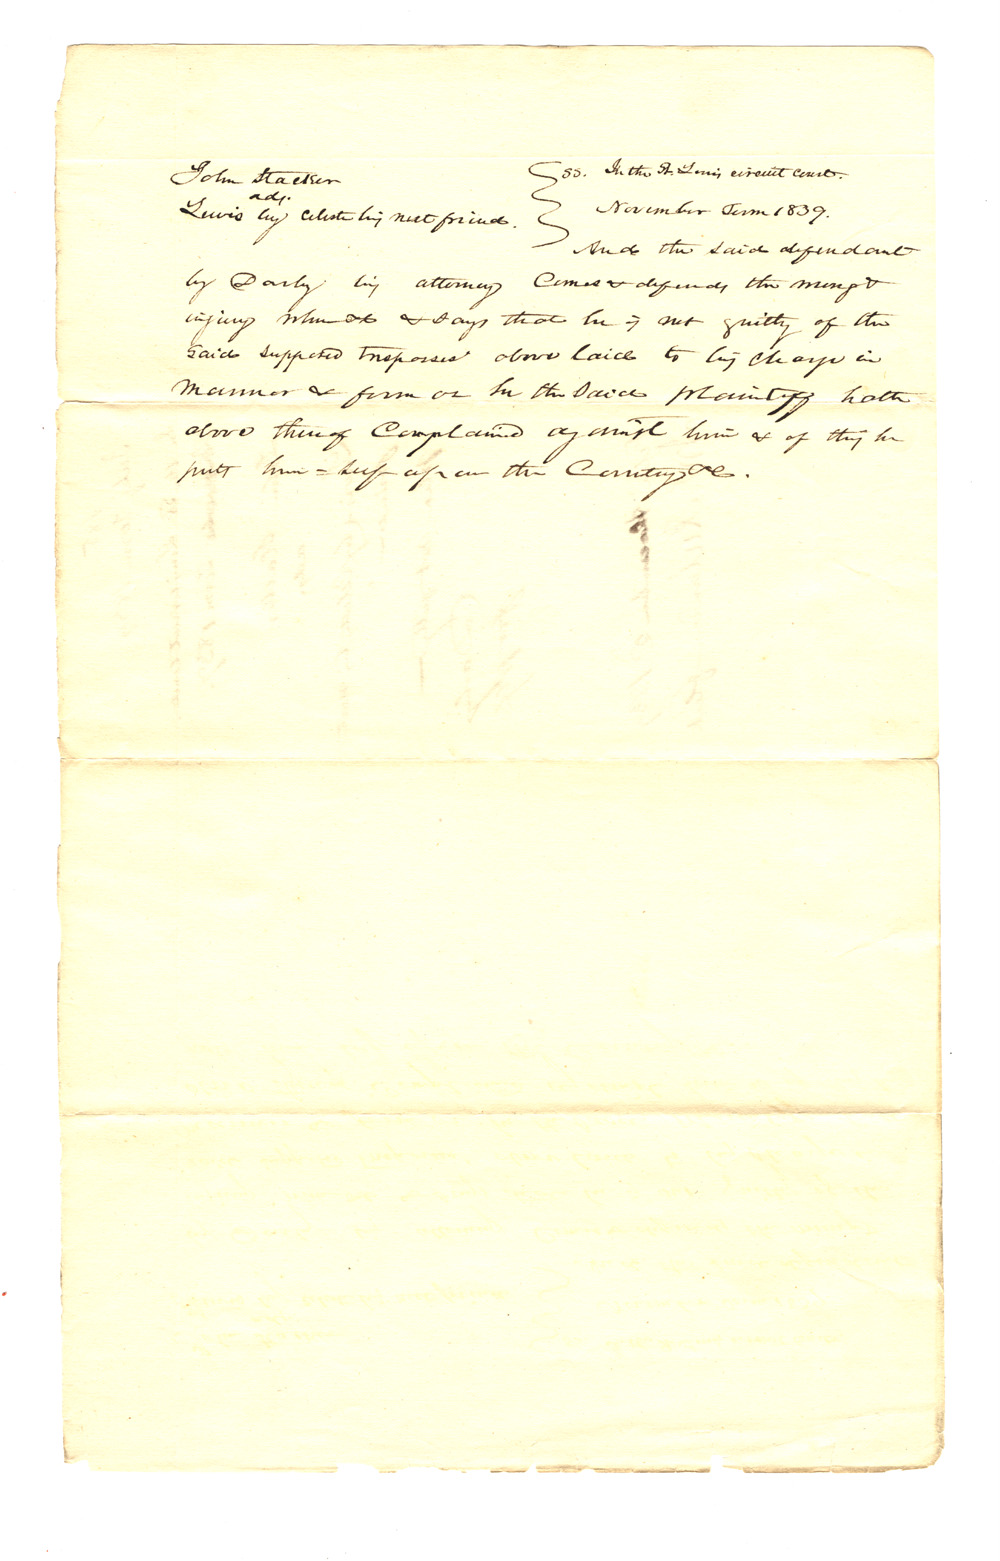 John Stacker
ads.
Lewis by Celeste his next friend.
ss. In the St. Louis circuit court.
November Term 1839.
And the said defendant
by Darby his attorney Comes & defends the wrong &
injury when &c & Says that he is not guilty of the
said Supposed trespasses above laid to his charge in
manner & form as he the Said plaintiff hath
above thereof Complained against him & of this he
puts him = self upon the Country &C.